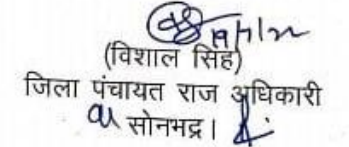 19/1/22
(विशाल सिंह)
जिला पंचायत राज अधिकारी
सोनभद्र।